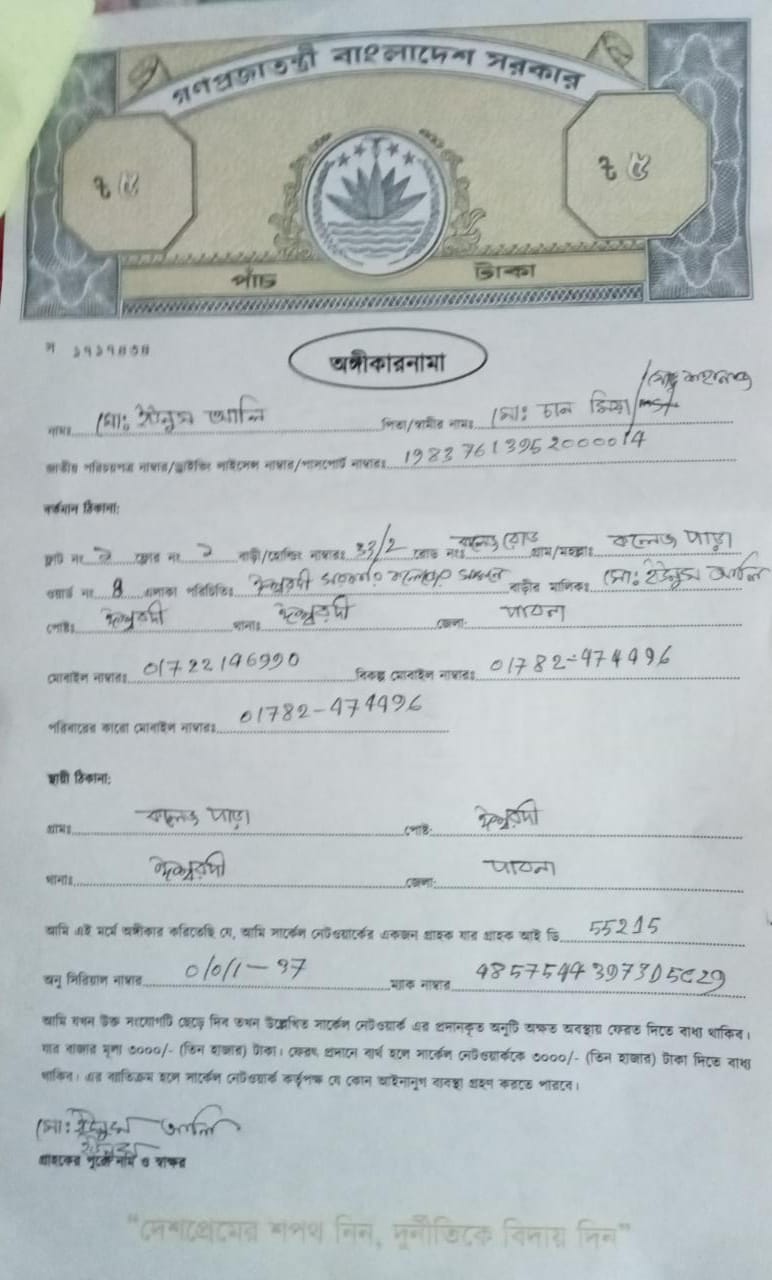 গণপ্রজাতন্ত্রী বাংলাদেশ সরকার
৳ ৫ ৳ ৫
পাঁচ টাকা
অঙ্গীকারনামা
নামঃ মোঃ ইউনুস আলি পিতা/স্বামীর নামঃ মোঃ চান মিয়া
জাতীয় পরিচয়পত্র নাম্বার/ড্রাইভিং লাইসেন্স নাম্বার/পাসপোর্ট নাম্বারঃ 19837613952000014
বর্তমান ঠিকানা:
ফ্ল্যাট নং ২ ফ্লোর নং ২ বাড়ী/হোল্ডিং নাম্বারঃ 33/2 রোড নংঃ কলেজ রোড গ্রাম/মহল্লাঃ কলেজ পাড়া
ওয়ার্ড নং 4 এলাকা পরিচিতিঃ ঈশ্বরদী সরকারি কলেজের বাড়ীর মালিকঃ মোঃ ইউনুস আলি
পোষ্টঃ ঈশ্বরদী থানাঃ ঈশ্বরদী জেলা: পাবনা
মোবাইল নাম্বারঃ 01722196990 বিকল্প মোবাইল নাম্বারঃ 01782-474496
পরিবারের কারো মোবাইল নাম্বারঃ 01782-474496
স্থায়ী ঠিকানা:
গ্রামঃ কলেজ পাড়া পোষ্ট: ঈশ্বরদী
থানাঃ ঈশ্বরদী জেলা: পাবনা
আমি এই মর্মে অঙ্গীকার করিতেছি যে, আমি সার্কেল নেটওয়ার্কের একজন গ্রাহক যার গ্রাহক আই ডি 55215
অনু সিরিয়াল নাম্বার 0/0/1-97 ম্যাক নাম্বার 4857544397305C29
আমি যখন উক্ত সংযোগটি ছেড়ে দিব তখন উল্লেখিত সার্কেল নেটওয়ার্ক এর প্রদানকৃত অনুটি অক্ষত অবস্থায় ফেরত দিতে বাধ্য থাকিব।
যার বাজার মূল্য ৩০০০/- (তিন হাজার) টাকা। ফেরৎ প্রদানে ব্যর্থ হলে সার্কেল নেটওয়ার্ককে ৩০০০/- (তিন হাজার) টাকা দিতে বাধ্য
থাকিব। এর ব্যতিক্রম হলে সার্কেল নেটওয়ার্ক কর্তৃপক্ষ যে কোন আইনানুগ ব্যবস্থা গ্রহন করতে পারবে।
মোঃ ইউনুস আলি
ইউনুস
গ্রাহকের পুরো নাম ও স্বাক্ষর
"দেশপ্রেমের শপথ নিন, দুর্নীতিকে বিদায় দিন"